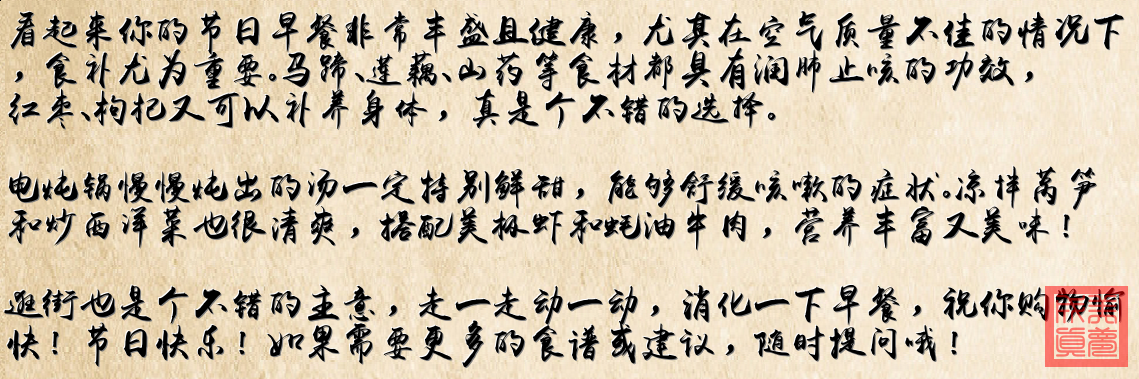 看起来你的节日早餐非常丰盛且健康，尤其在空气质量不佳的情况下
，食补尤为重要。马蹄、莲藕、山药等食材都具有润肺止咳的功效，
红枣、枸杞又可以补养身体，真是个不错的选择。
电炖锅慢慢炖出的汤一定特别鲜甜，能够舒缓咳嗽的症状。凉拌莴笋
和炒西洋菜也很清爽，搭配美极虾和蚝油牛肉，营养丰富又美味！
逛街也是个不错的主意，走一走动一动，消化一下早餐，祝你购物愉
快！节日快乐！如果需要更多的食谱或建议，随时提问哦！